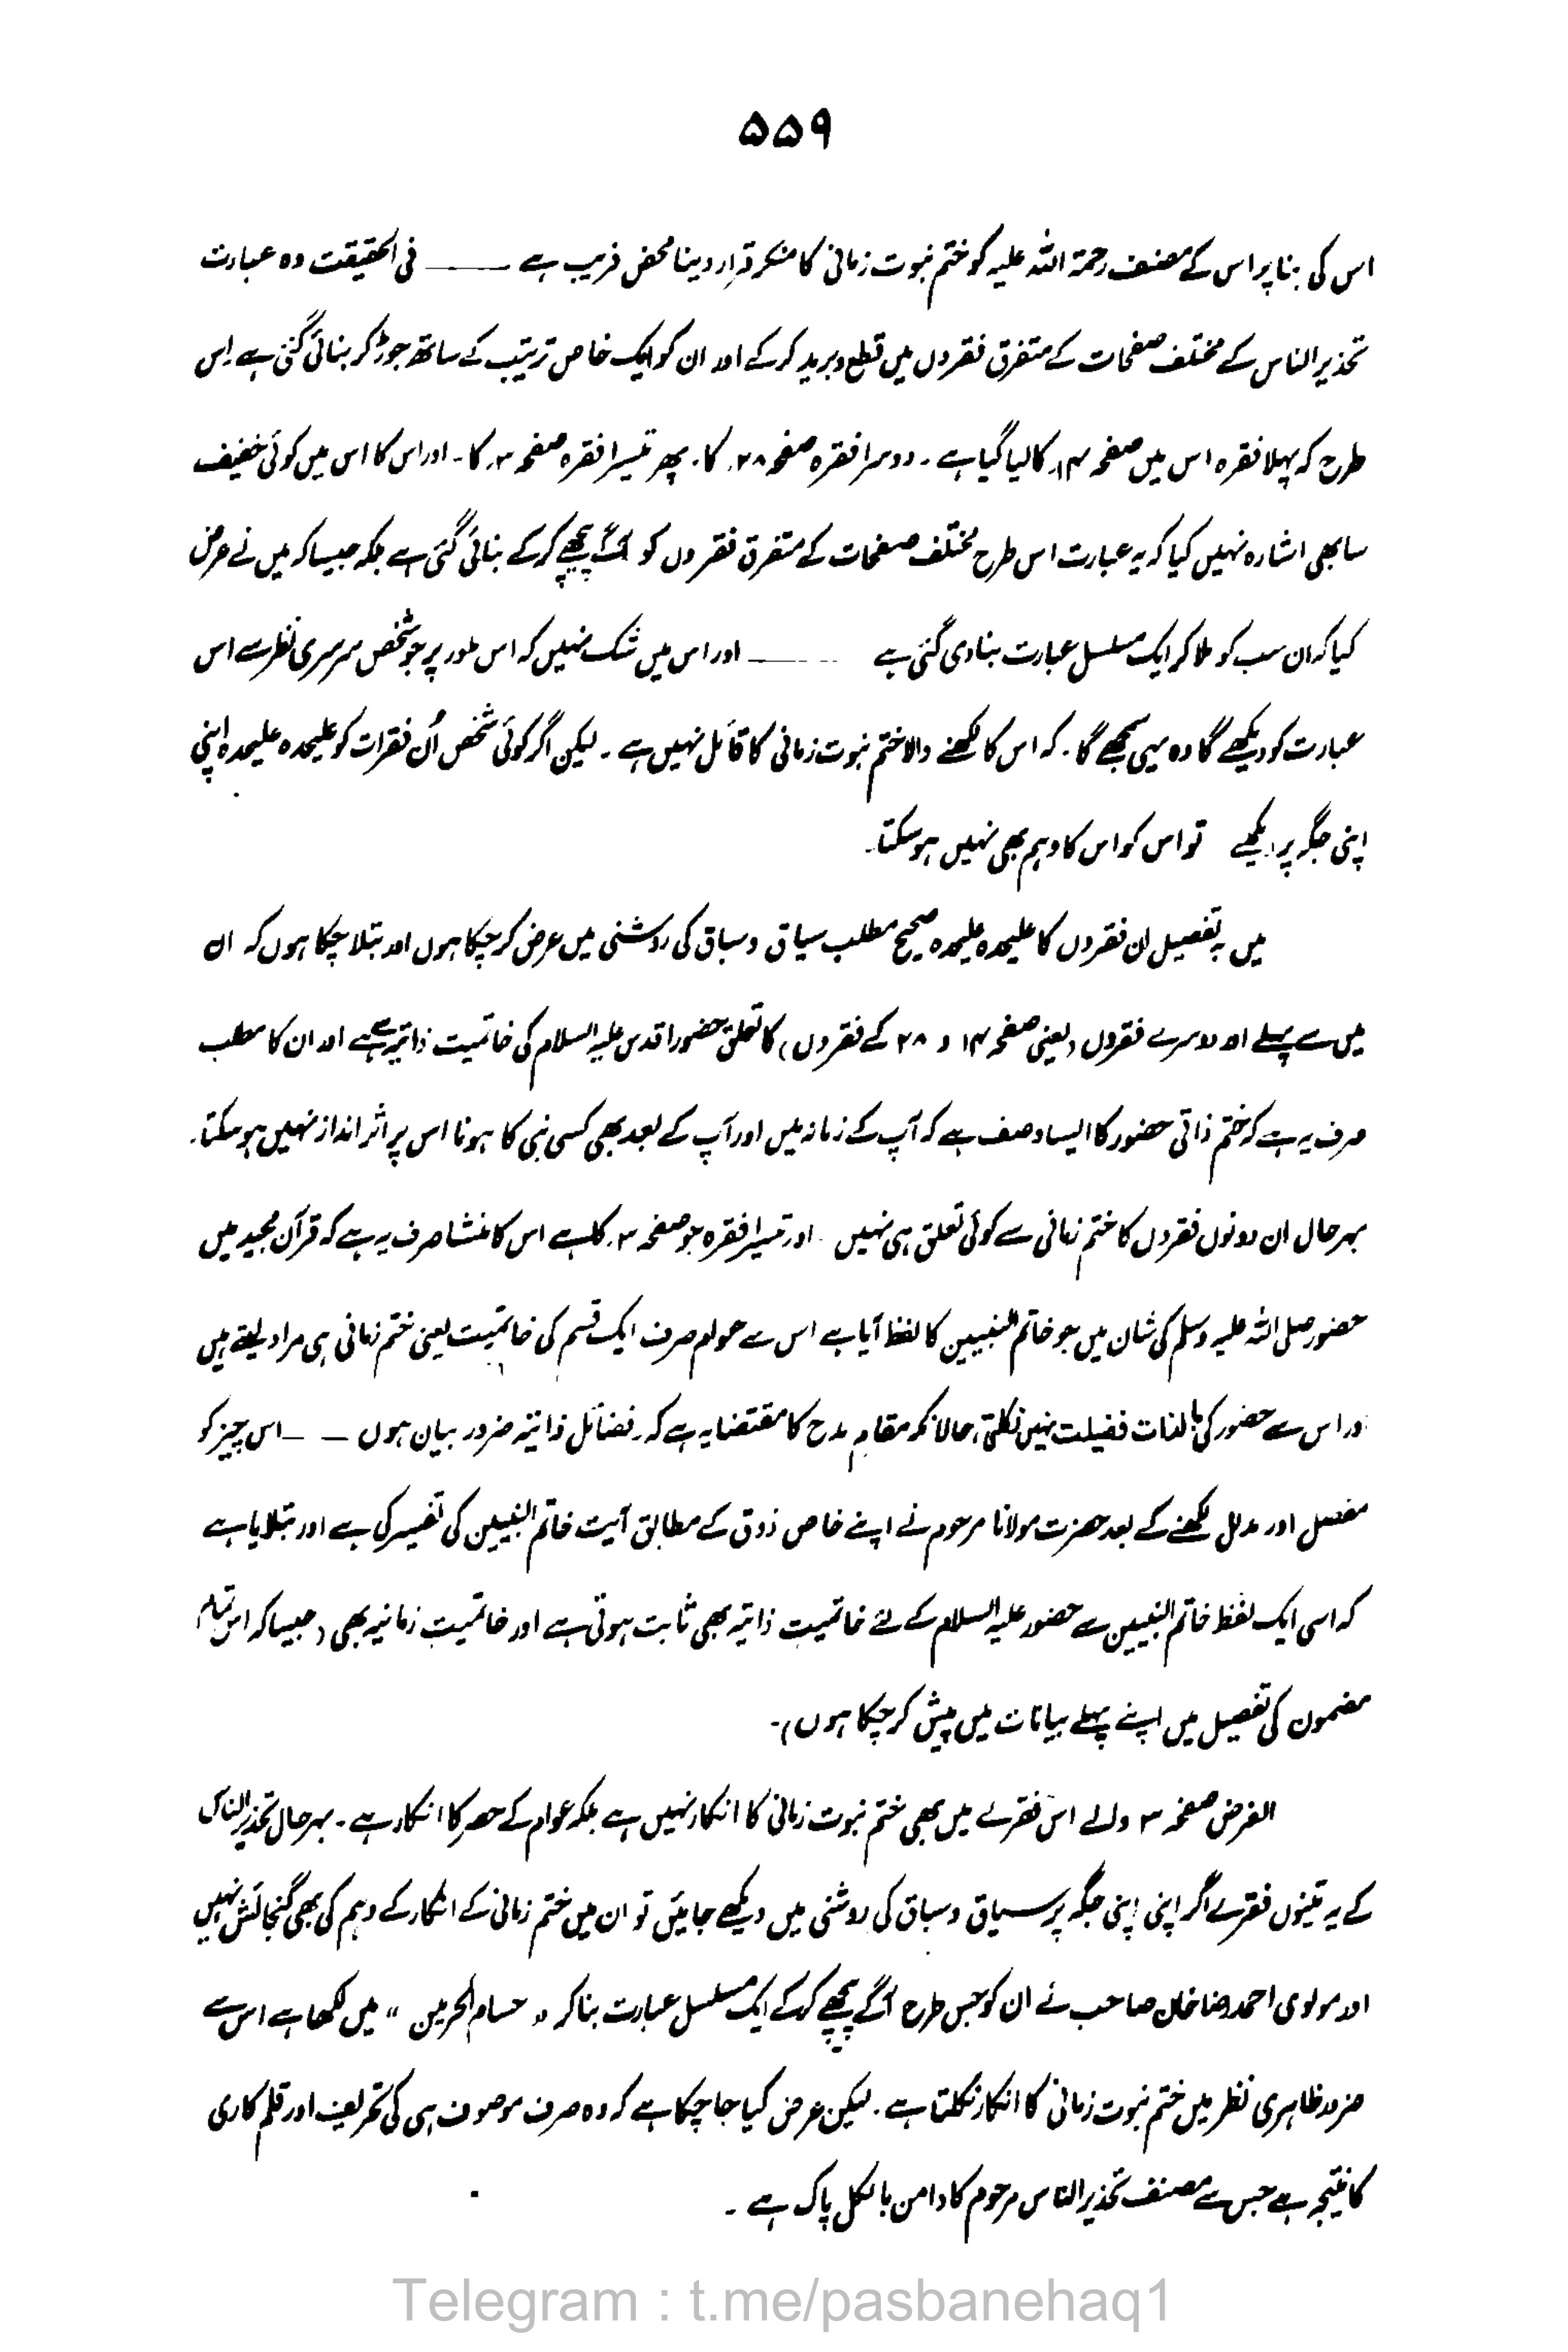 ۵۵۹
اس کی بنا پر اس کے مصنف رحمۃ اللہ علیہ کو ختم نبوت زمانی کا منکر قرار دینا محض فریب ہے ——— فی الحقیقت وہ عبارت
تحذیر الناس کے مختلف صفحات کے متفرق فقروں میں قطع و برید کر کے اور ان کو ایک خاص ترتیب کے ساتھ جوڑ کر بنائی گئی ہے اِس
طرح کہ پہلا فقرہ اس میں صفحہ ۱۴ کا لیا گیا ہے ۔ دوسرا فقرہ صفحہ ۲۸ کا ۔ پھر تیسرا فقرہ صفحہ ۳ کا ۔ اور اس کا اس میں کوئی خفیف
سا بھی اشارہ نہیں کیا کہ یہ عبارت اس طرح مختلف صفحات کے متفرق فقروں کو آگے پیچھے کر کے بنائی گئی ہے بلکہ جیسا کہ میں نے عرض
کیا کہ ان سب کو ملا کر ایک مسلسل عبارت بنا دی گئی ہے ——— اور اس میں شک نہیں کہ اس طور پر جو شخص سرسری نظر سے اس
عبارت کو دیکھے گا وہ یہی سمجھے گا ۔ کہ اس کا لکھنے والا ختم نبوت زمانی کا قائل نہیں ہے ۔ لیکن اگر کوئی شخص اُن فقرات کو علیحدہ علیحدہ اپنی
اپنی جگہ پر دیکھے تو اس کو اس کا وہم بھی نہیں ہو سکتا۔
میں بہ تفصیل ان فقروں کا علیحدہ علیحدہ صحیح مطلب سیاق و سباق کی روشنی میں عرض کر چکا ہوں اور بتلا چکا ہوں کہ ان
میں سے پہلے اور دوسرے فقروں (یعنی صفحہ ۱۴ و ۲۸ کے فقروں) کا تعلق حضور اقدس علیہ السلام کی خاتمیت ذاتیہ سے ہے اور ان کا مطلب
صرف یہ ہے کہ ختم ذاتی حضور کا ایسا وصف ہے کہ آپ کے زمانہ میں اور آپ کے بعد بھی کسی نبی کا ہونا اس پر اثر انداز نہیں ہو سکتا۔
بہر حال ان دونوں فقروں کا ختم زمانی سے کوئی تعلق ہی نہیں ۔ اور تیسرا فقرہ جو صفحہ ۳ کا ہے اس کا منشا صرف یہ ہے کہ قرآن مجید میں
حضور صلی اللہ علیہ وسلم کی شان میں جو خاتم النبیین کا لفظ آیا ہے اس سے عوام صرف ایک قسم کی خاتمیت یعنی ختم زمانی ہی مراد لیتے ہیں
اور اس سے حضور کی بالذات فضیلت نہیں نکلتی، حالانکہ مقام مدح کا مقتضا یہ ہے کہ فضائل ذاتیہ ضرور بیان ہوں —— اس چیز کو
مفصل اور مدلل لکھنے کے بعد حضرت مولانا مرحوم نے اپنے خاص ذوق کے مطابق آیت خاتم النبیین کی تفسیر کی ہے اور بتلایا ہے
کہ اسی ایک لفظ خاتم النبیین سے حضور علیہ السلام کے لئے خاتمیت ذاتیہ بھی ثابت ہوتی ہے اور خاتمیت زمانیہ بھی (جیسا کہ اس تمام
مضمون کی تفصیل میں اپنے پہلے بیانات میں پیش کر چکا ہوں)۔
الغرض صفحہ ۳ والے اس فقرے میں بھی ختم نبوت زمانی کا انکار نہیں ہے بلکہ عوام کے حصر کا انکار ہے ۔ بہر حال تحذیر الناس
کے یہ تینوں فقرے اگر اپنی اپنی جگہ پر سیاق و سباق کی روشنی میں دیکھے جائیں تو ان میں ختم زمانی کے انکار کے وہم کی بھی گنجائش نہیں
اور مولوی احمد رضا خاں صاحب نے ان کو جس طرح آگے پیچھے کر کے ایک مسلسل عبارت بنا کر " حسام الحرمین " میں لکھا ہے اس سے
ضرور ظاہری نظر میں ختم نبوت زمانی کا انکار نکلتا ہے ۔ لیکن عرض کیا جا چکا ہے کہ وہ صرف موصوف ہی کی تحریف اور قلم کاری
کا نتیجہ ہے جس سے مصنف تحذیر الناس مرحوم کا دامن بالکل پاک ہے ۔
Telegram : t.me/pasbanehaq1